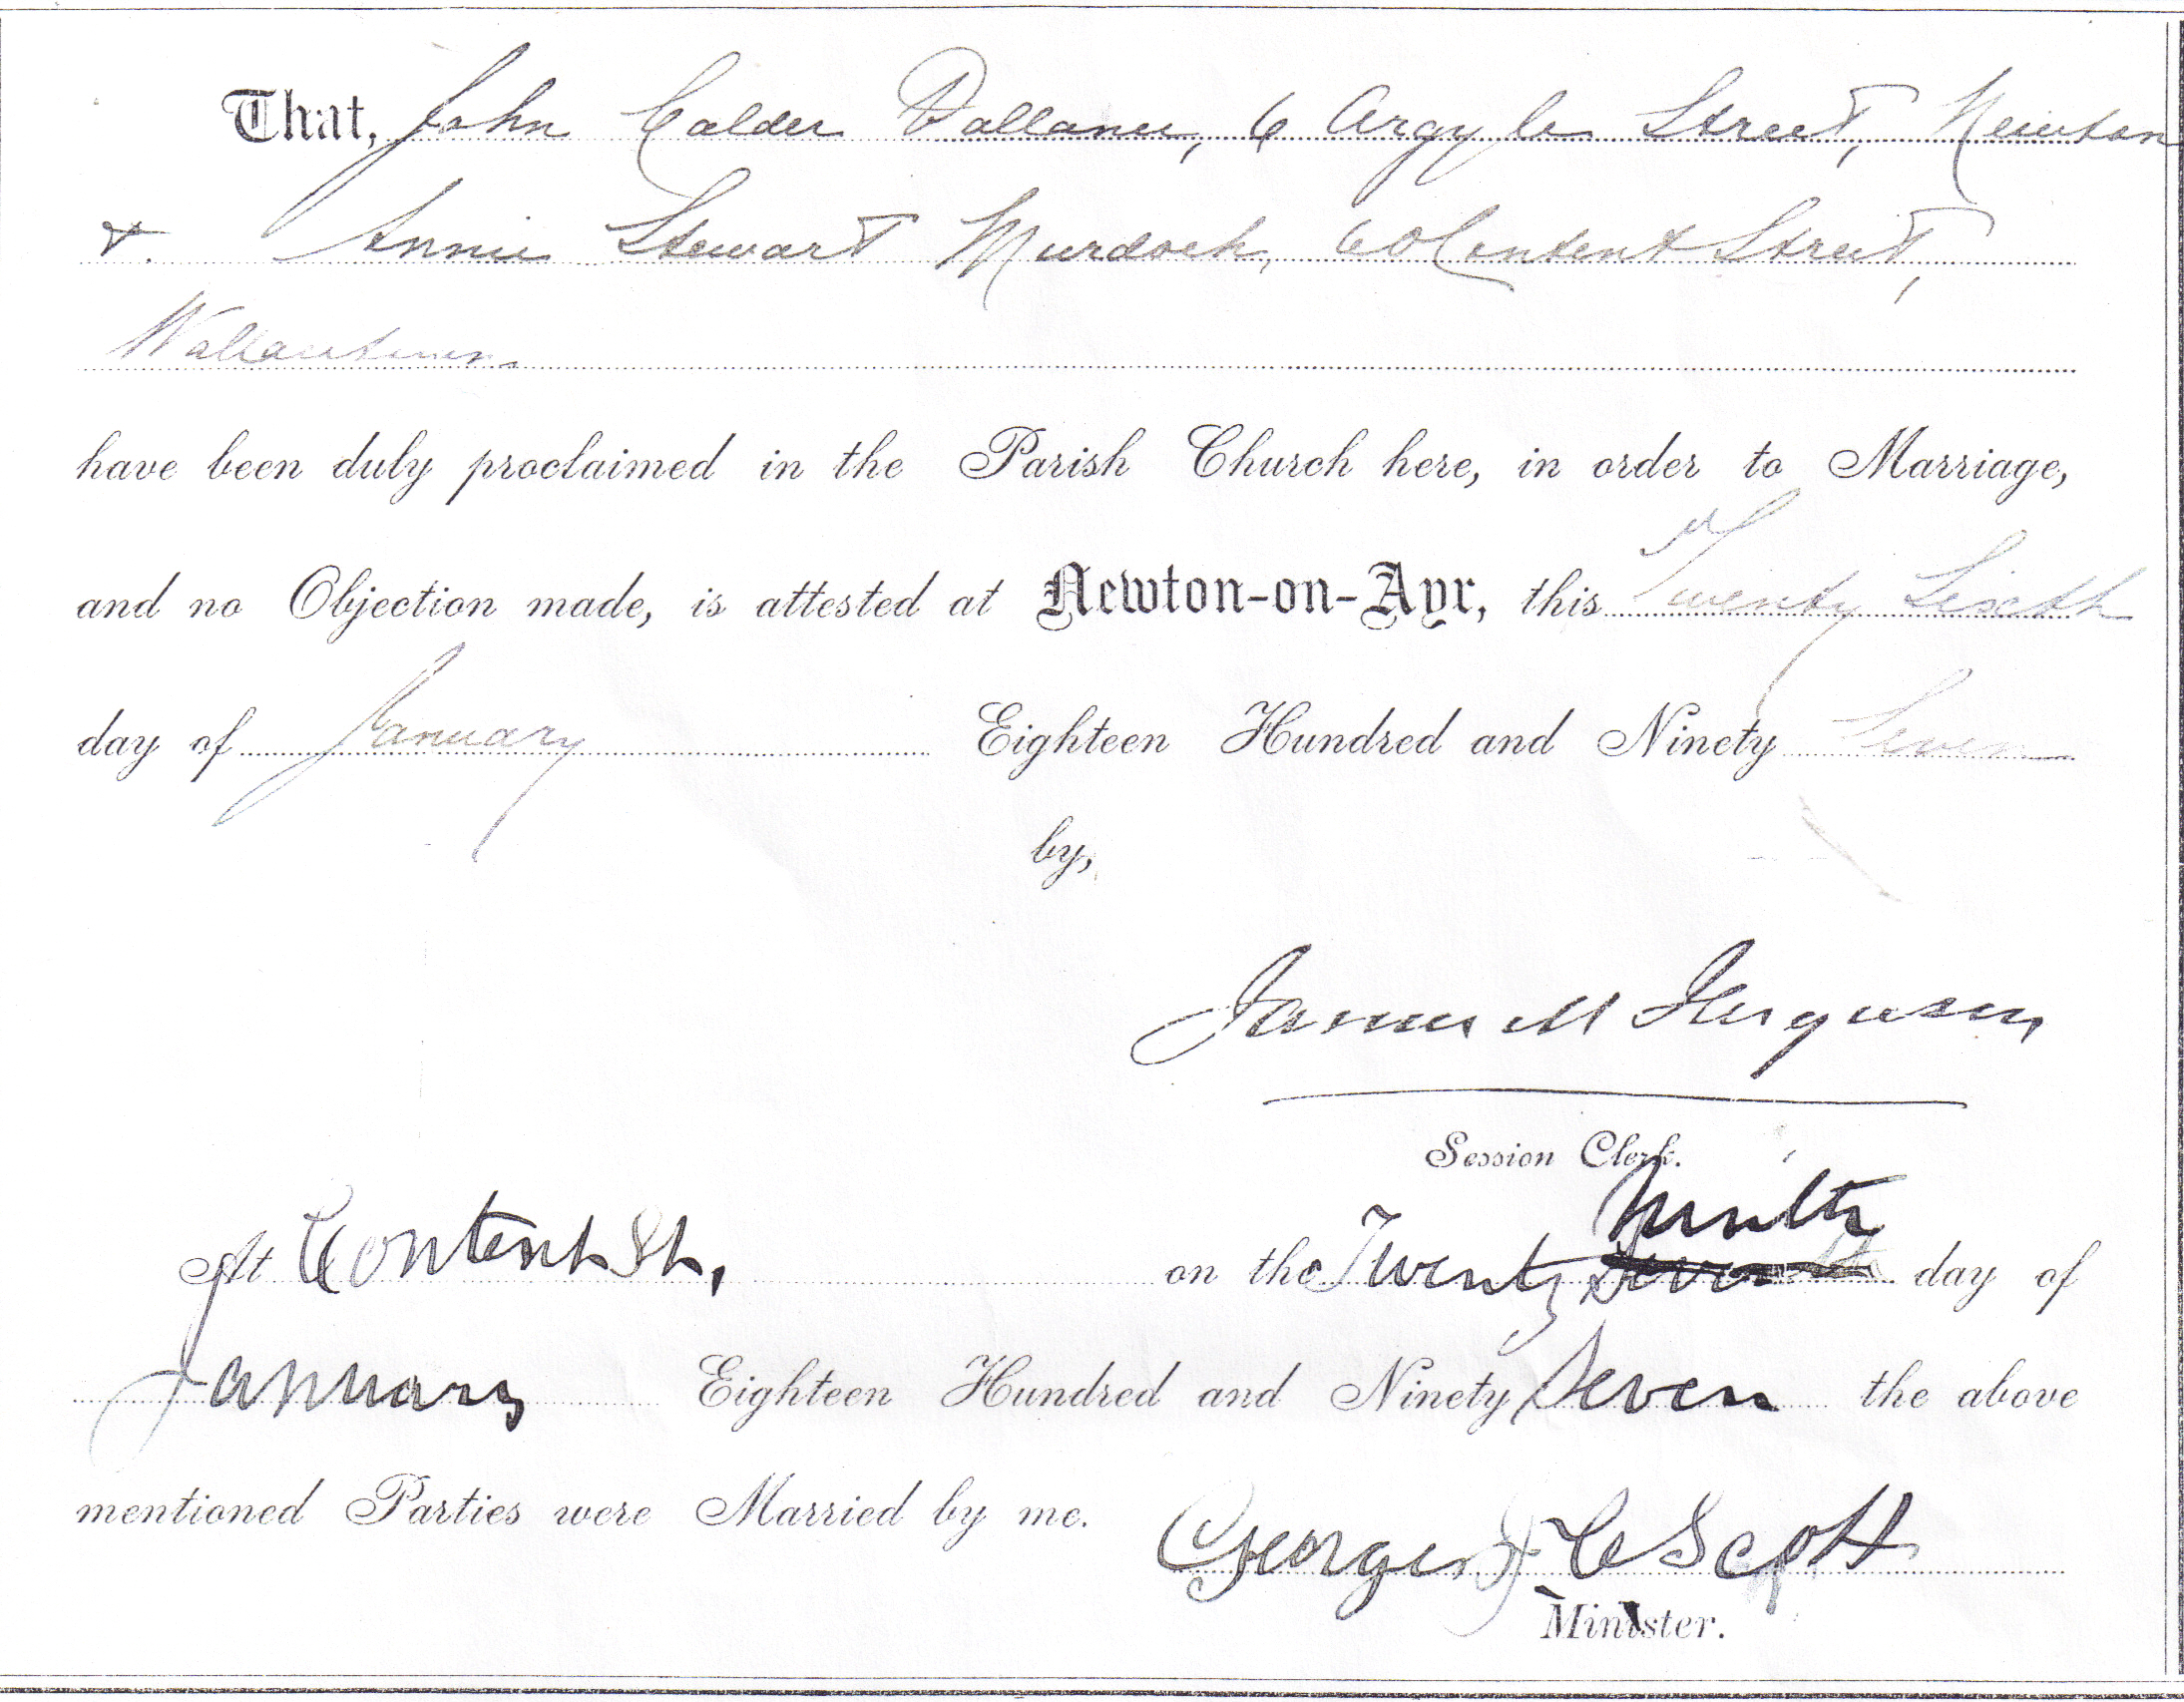 That, John Calder Vallance, 6 Argyle Street, Newton
& Annie Stewart Murdoch, 60 Content Street,
Wallacetown
have been duly proclaimed in the Parish Church here, in order to Marriage,
and no Objection made, is attested at Newton-on-Ayr, this Twenty Sixth
day of January Eighteen Hundred and Ninety Seven
by,
James M Ferguson
Session Clerk.
Ninth
At Content St, on the Twenty Seventh day of
January Eighteen Hundred and Ninety Seven the above
mentioned Parties were Married by me. George Scott
Minister.